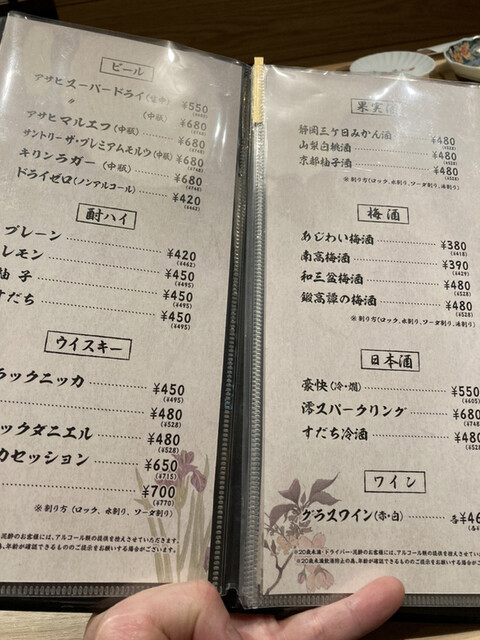 ビール
アサヒスーパードライ(生中) ¥550
(¥605)
〃 (中瓶) ¥680
(¥748)
アサヒマルエフ(中瓶) ¥680
(¥748)
サントリーザ・プレミアムモルツ(中瓶) ¥680
(¥748)
キリンラガー(中瓶) ¥680
(¥748)
ドライゼロ(ノンアルコール) ¥420
(¥462)
酎ハイ
プレーン ¥420
(¥462)
レモン ¥450
(¥495)
柚子 ¥450
(¥495)
すだち ¥450
(¥495)
ウイスキー
ラックニッカ ¥450
(¥495)
¥480
(¥528)
ックダニエル ¥480
(¥528)
カセッション ¥650
(¥715)
¥700
(¥770)
※割り方(ロック、水割り、ソーダ割り)
泥酔のお客様には、アルコール類の提供を控えさせていただきます。
為、年齢が確認できるもののご提示をお願いする場合がございます。
果実酒
静岡三ケ日みかん酒 ¥480
(¥528)
山梨白桃酒 ¥480
(¥528)
京都柚子酒 ¥480
(¥528)
※割り方(ロック、水割り、ソーダ割り、湯割り)
梅酒
あじわい梅酒 ¥380
(¥418)
南高梅酒 ¥390
(¥429)
和三盆梅酒 ¥480
(¥528)
鍛高譚の梅酒 ¥480
(¥528)
※割り方(ロック、水割り、ソーダ割り、湯割り)
日本酒
豪快(冷・燗) ¥550
(¥605)
澪スパークリング ¥680
(¥748)
すだち冷酒 ¥480
(¥528)
ワイン
グラスワイン(赤・白) 各¥46
※20歳未満・ドライバー・泥酔のお客様には、アルコール類の提供を控え
※20歳未満飲酒防止の為、年齢が確認できるもののご提示をお願いする場合が